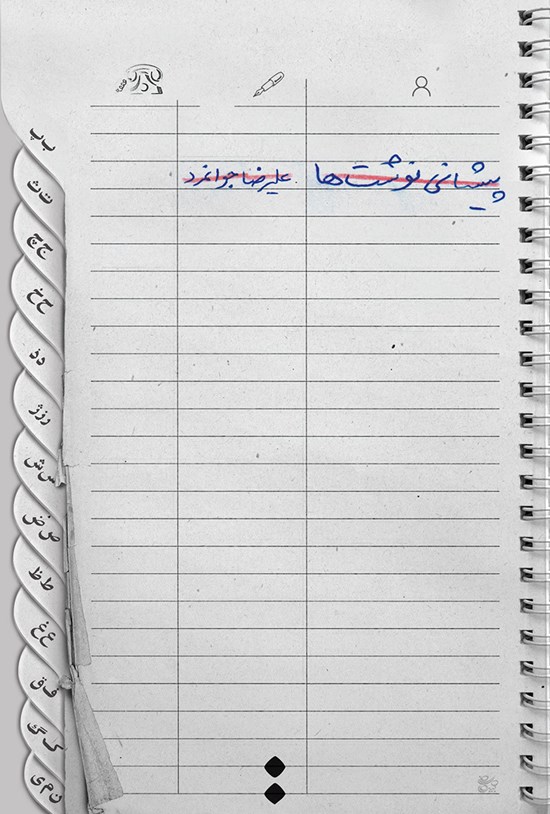 پیشانی‌نوشت‌ها علیرضا جوانمرد
ب پ
ت ث
ج چ
ح خ
د ذ
ر ز ژ
س ش
ص ض
ط ظ
ع غ
ف ق
ک گ
ن م ی